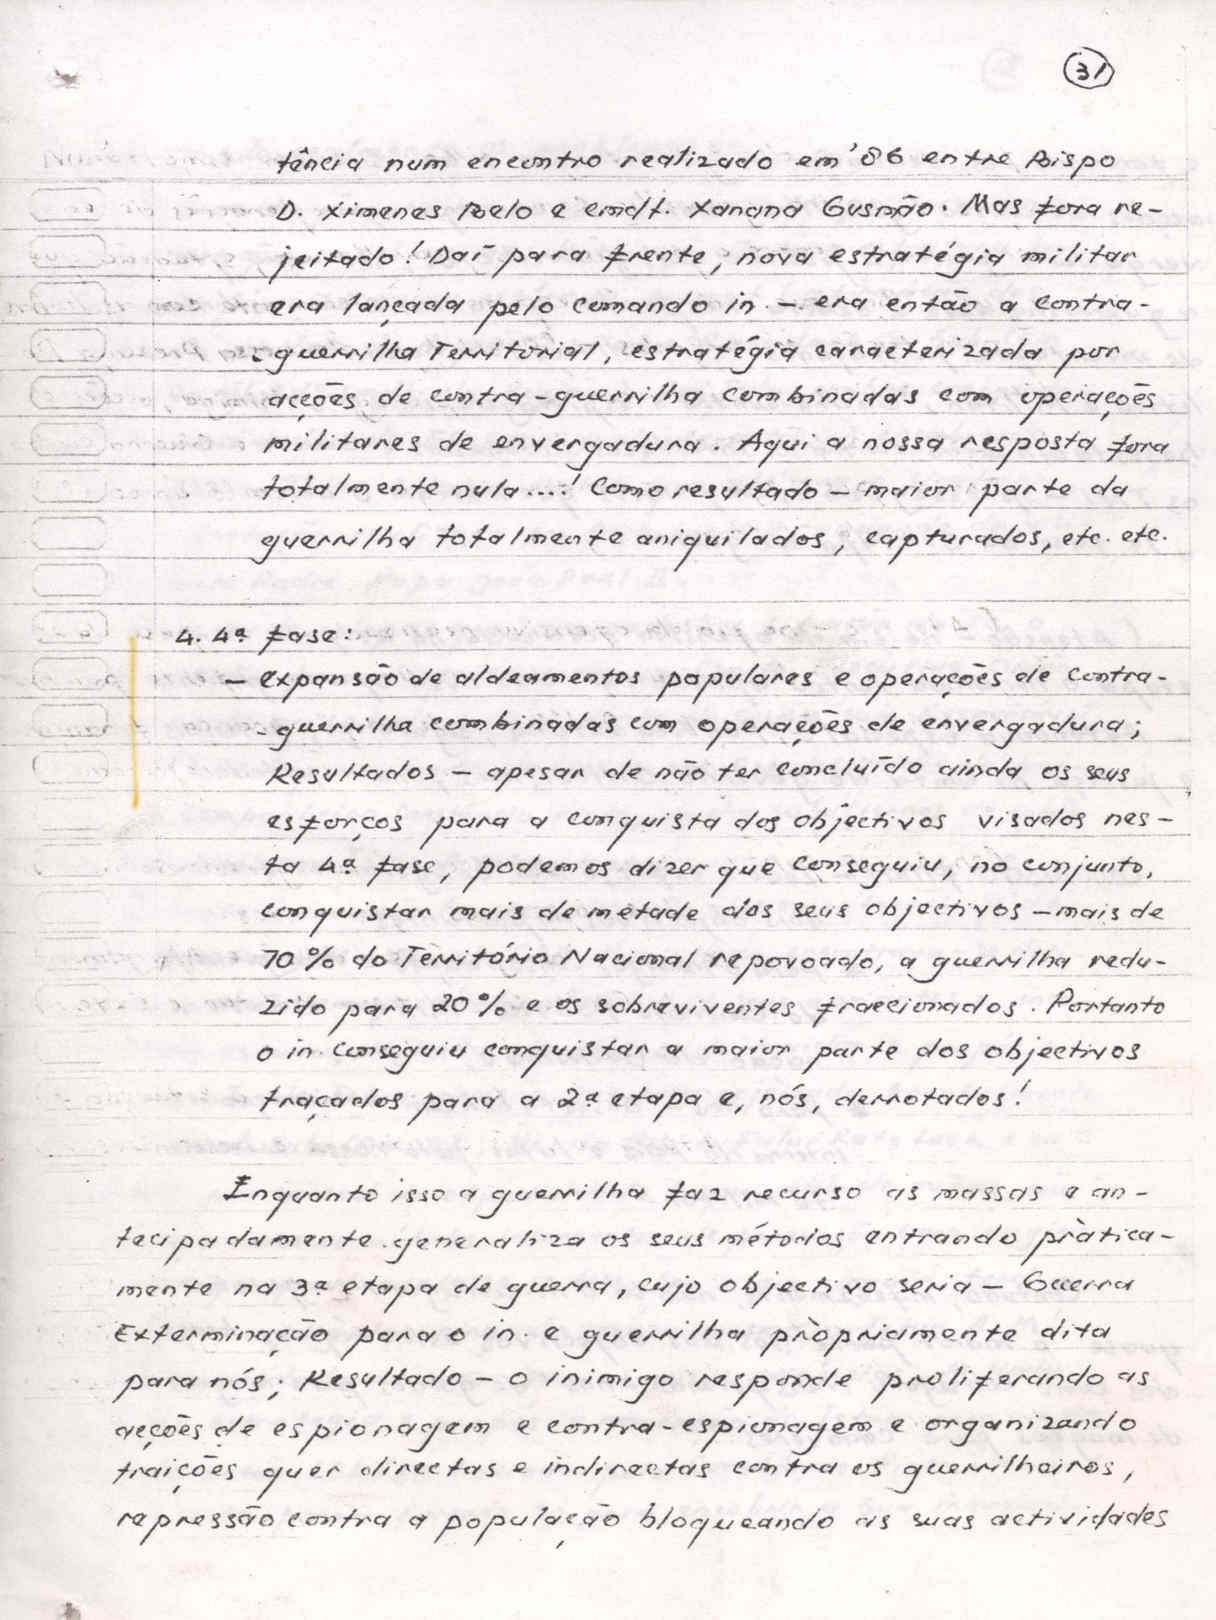 31
tência num encontro realizado em '86 entre Bispo
D. Ximenes Belo e cmdt. Xanana Gusmão. Mas fora re-
jeitado! Daí para frente, nova estratégia militar
era lançada pelo comando in. - era então a contra-
-guerrilha Territorial, estratégia caracterizada por
acções de contra-guerrilha combinadas com operações
militares de envergadura. Aqui a nossa resposta fora
totalmente nula....! Como resultado - maior parte da
guerrilha totalmente aniquilados, capturados, etc. etc.
4. 4ª fase:
- expansão de aldeamentos populares e operações de contra-
-guerrilha combinadas com operações de envergadura;
Resultados - apesar de não ter concluído ainda os seus
esforços para a conquista dos objectivos visados nes-
ta 4ª fase, podemos dizer que conseguiu, no conjunto,
conquistar mais de metade dos seus objectivos - mais de
70% do Território Nacional repovoado, a guerrilha redu-
zido para 20% e os sobreviventes fraccionados. Portanto
o in. conseguiu conquistar a maior parte dos objectivos
traçados para a 2ª etapa e, nós, derrotados!
Enquanto isso a guerrilha faz recurso as massas e an-
tecipadamente generaliza os seus métodos entrando pràtica-
mente na 3ª etapa de guerra, cujo objectivo seria - Guerra
Exterminação para o in. e guerrilha pròpriamente dita
para nós; Resultado - o inimigo responde proliferando as
acções de espionagem e contra-espionagem e organizando
traições quer directas e indirectas contra os guerrilheiros,
repressão contra a população bloqueando as suas actividades